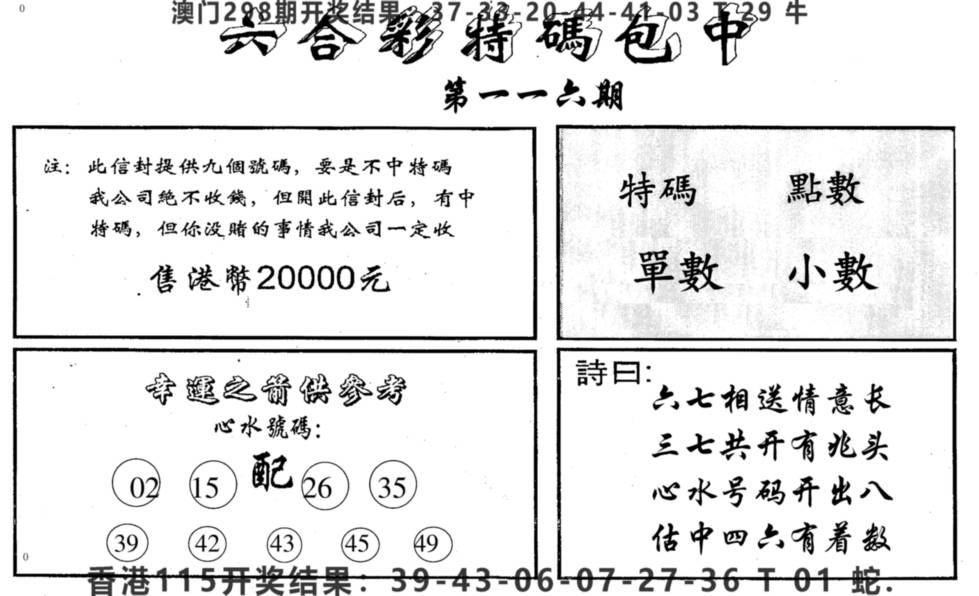 0
澳门298期开奖结果：37-33-20-44-41-03 T 29 牛
六合彩特碼包中
第一一六期
注：此信封提供九個號碼，要是不中特碼
我公司絕不收錢，但開此信封后，有中
特碼，但你没賭的事情我公司一定收
售港幣20000元
特碼 點數
單數 小數
幸運之前供参考
心水號碼：
配
02 15 26 35
39 42 43 45 49
詩曰：
六七相送情意长
三七共开有兆头
心水号码开出八
估中四六有着数
0
香港115开奖结果：39-43-06-07-27-36 T 01 蛇.